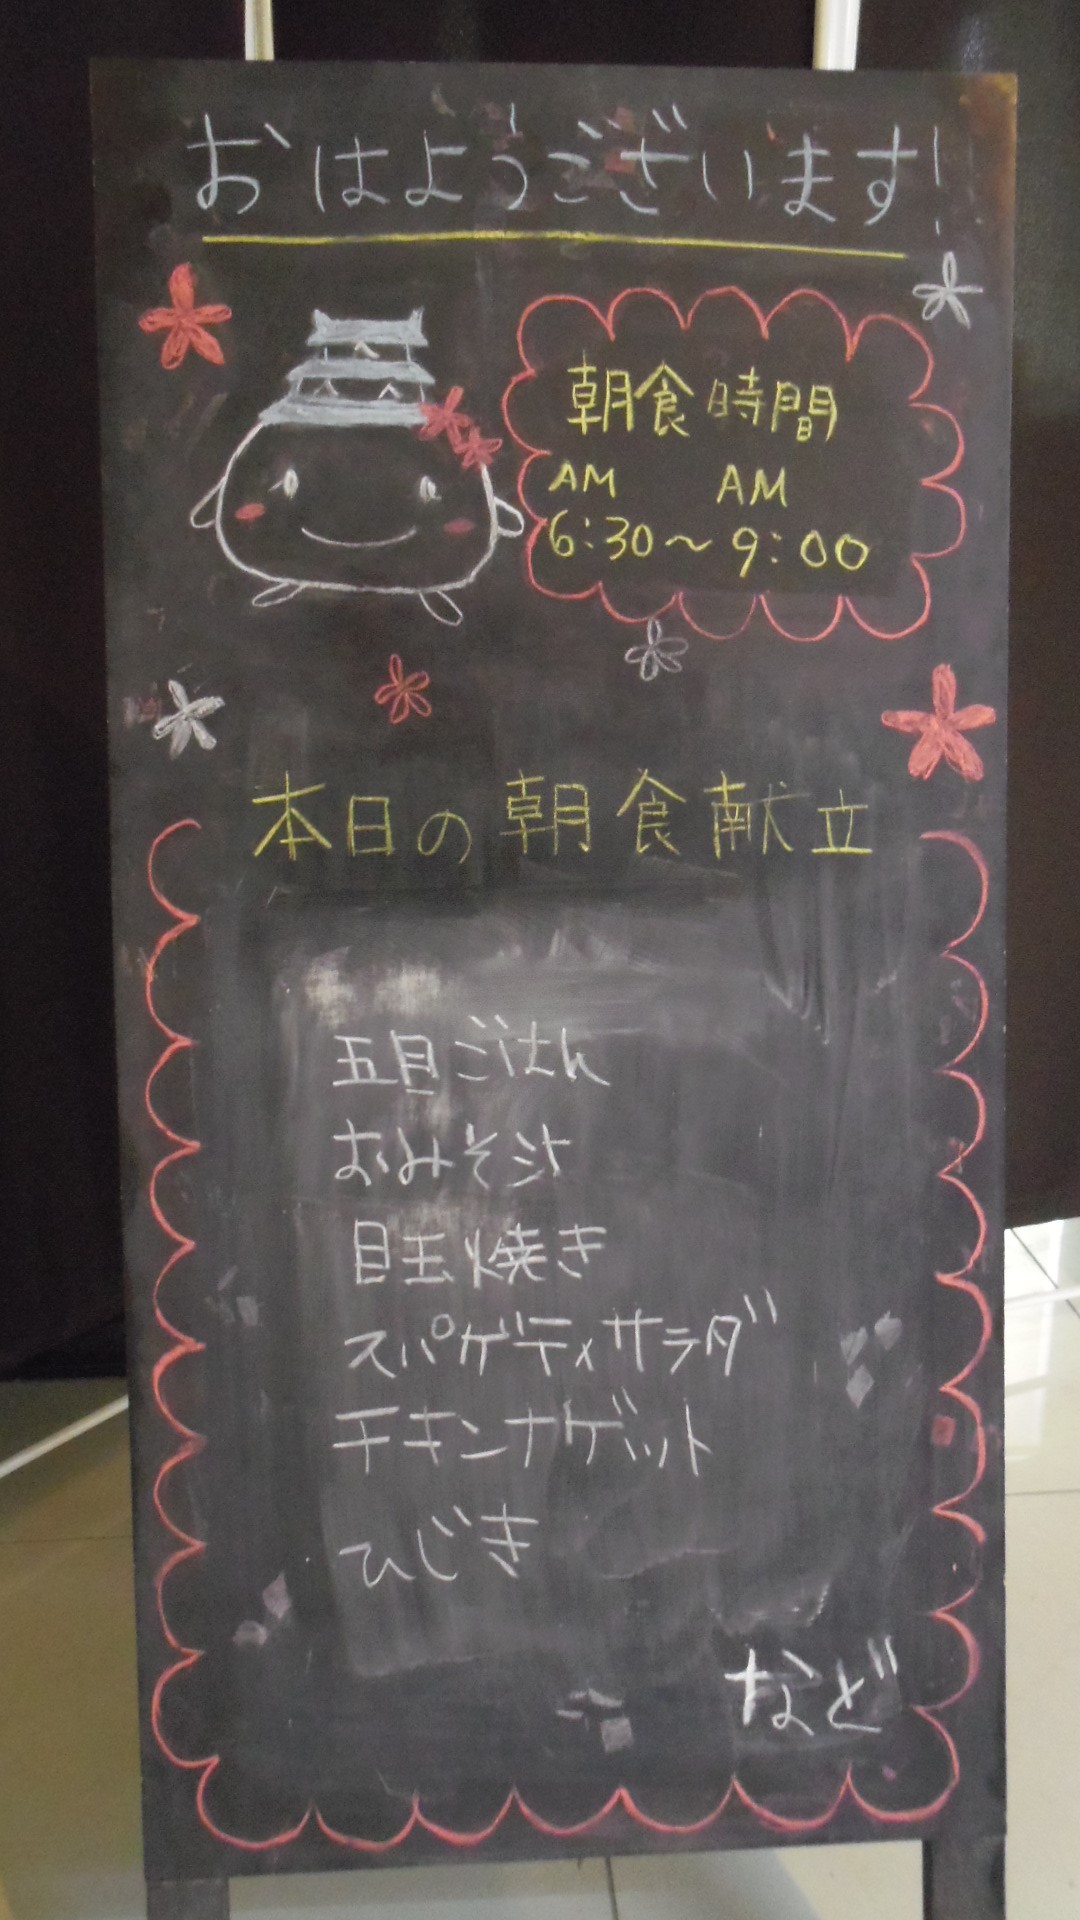 おはようございます!
朝食時間
AM AM
6:30~9:00
本日の朝食献立
五目ごはん
おみそ汁
目玉焼き
スパゲティサラダ
チキンナゲット
ひじき
など